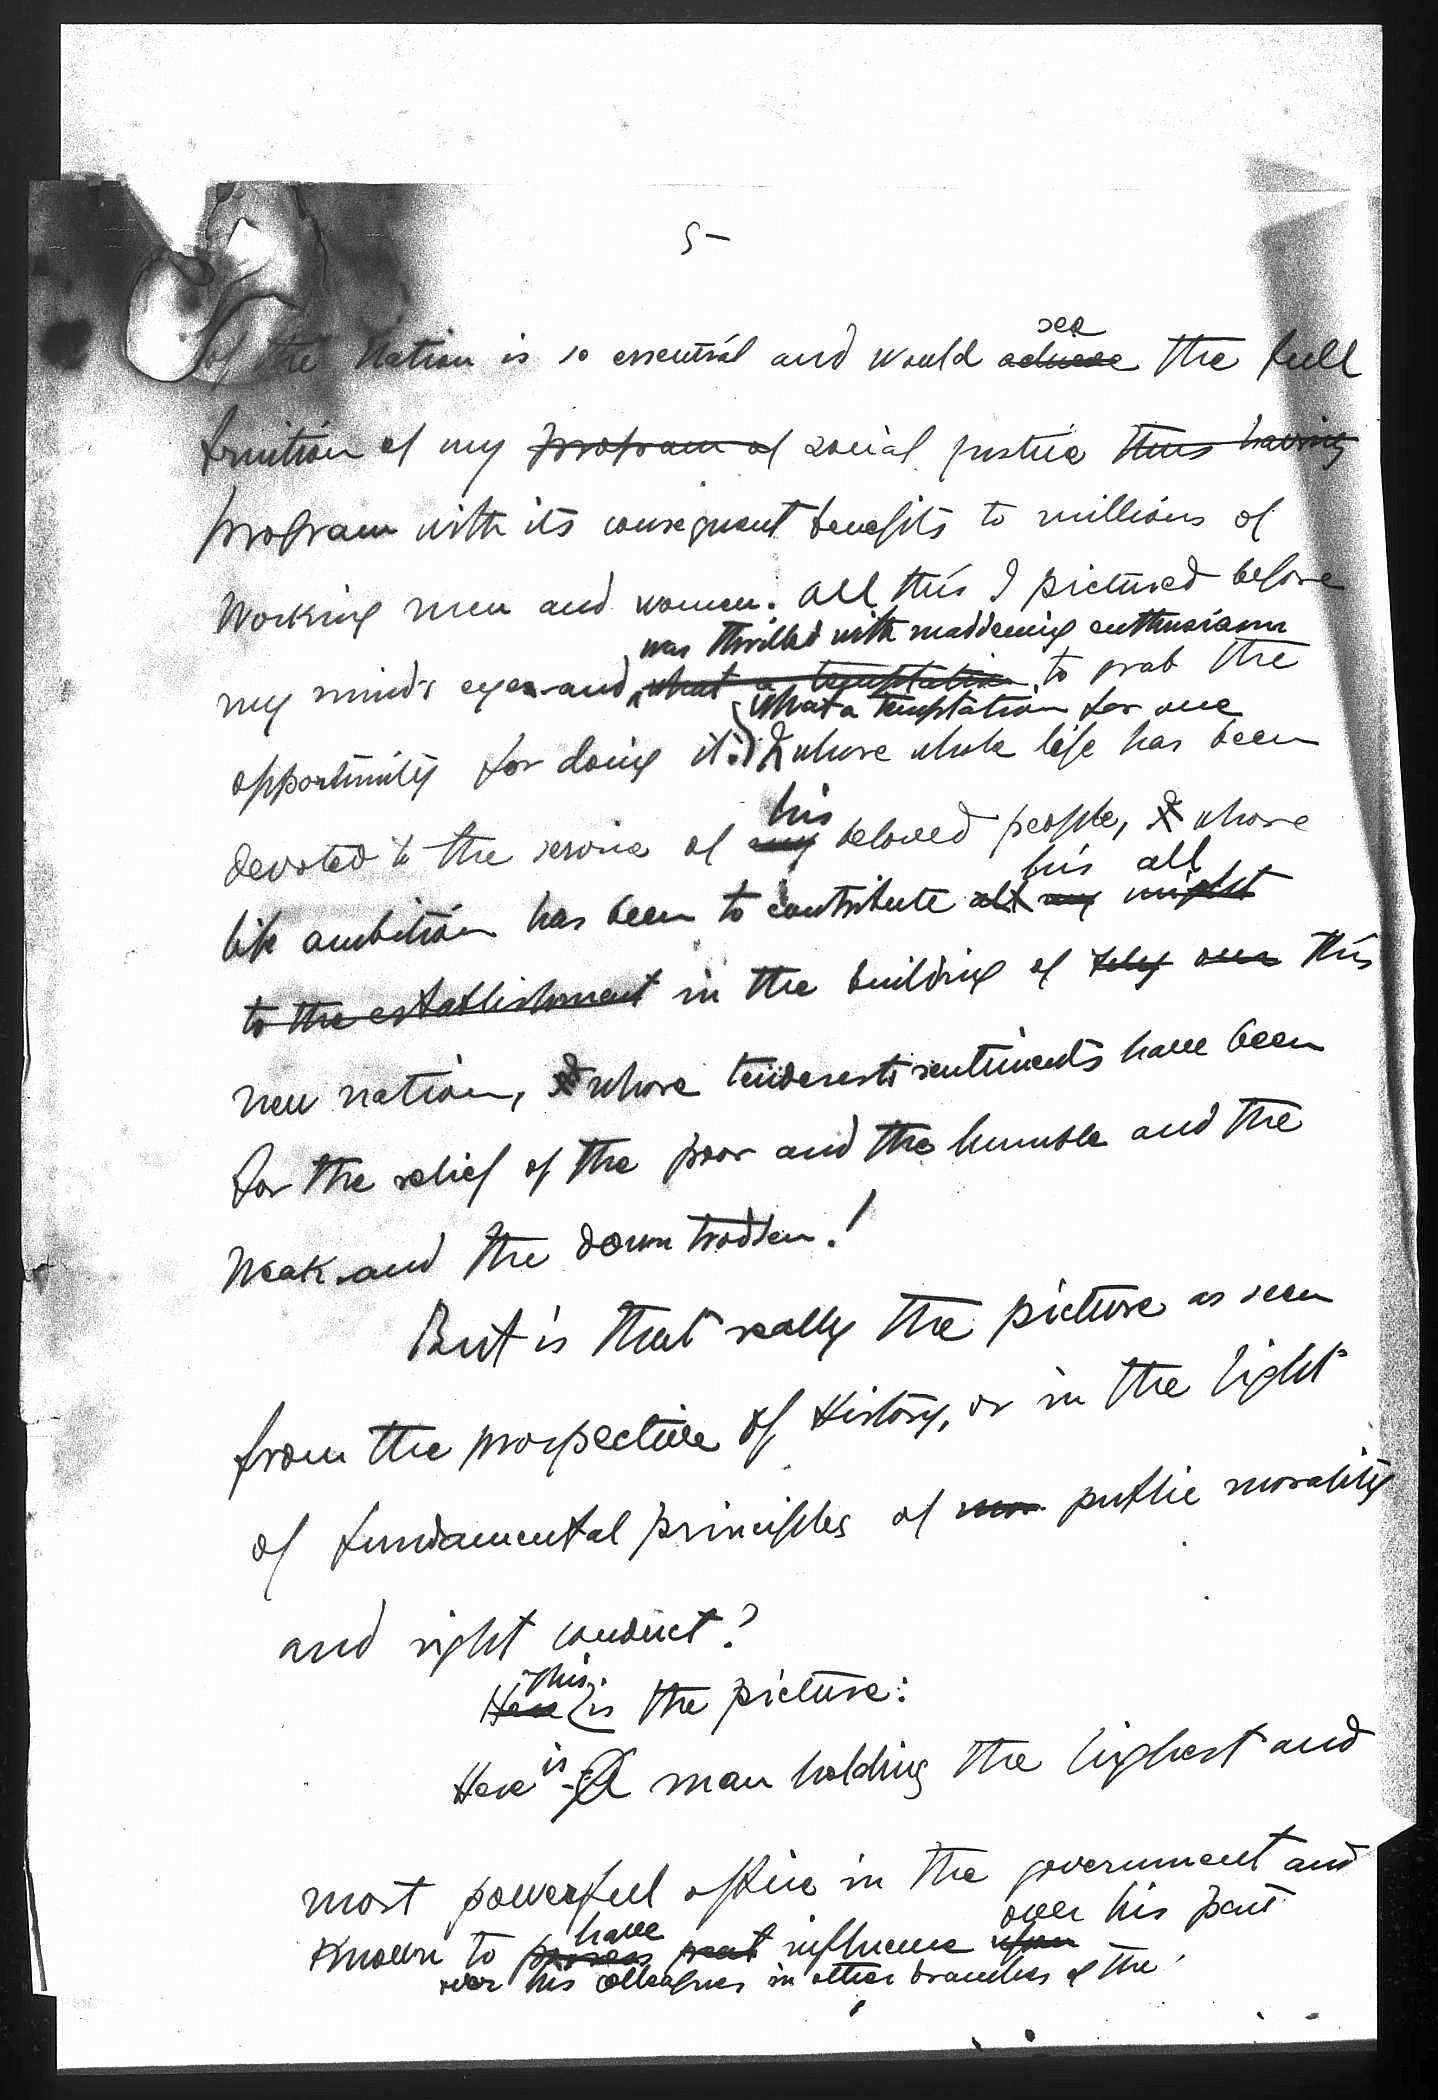 5-
see
of the Nation is so essential and would achieve the full
fruition of my program of social justice thus having
program with its consequent benefits to millions of
working men and women. All this I pictured before
was thrilled with maddening enthusiasm
my mind's eyes and what a temptation to grab the
what a temptation for one
opportunity for doing it. whose whole life has been
his
devoted to the service of my beloved people, whose
his all
life ambition has been to contribute all my might
to the establishment in the building of this
new nation, whose tenderests sentiments have been
for the relief of the poor and the humble and the
weak and the down trodden!
But is that really the picture as seen
from the prospective of History, or in the light
of fundamental principles of mor public morality
and right conduct?
This
Here is the picture:
is
Here A man holding the highest and
most powerful office in the government and
have over his part
Known to possess great influence upon
over his colleagues in other branches of the